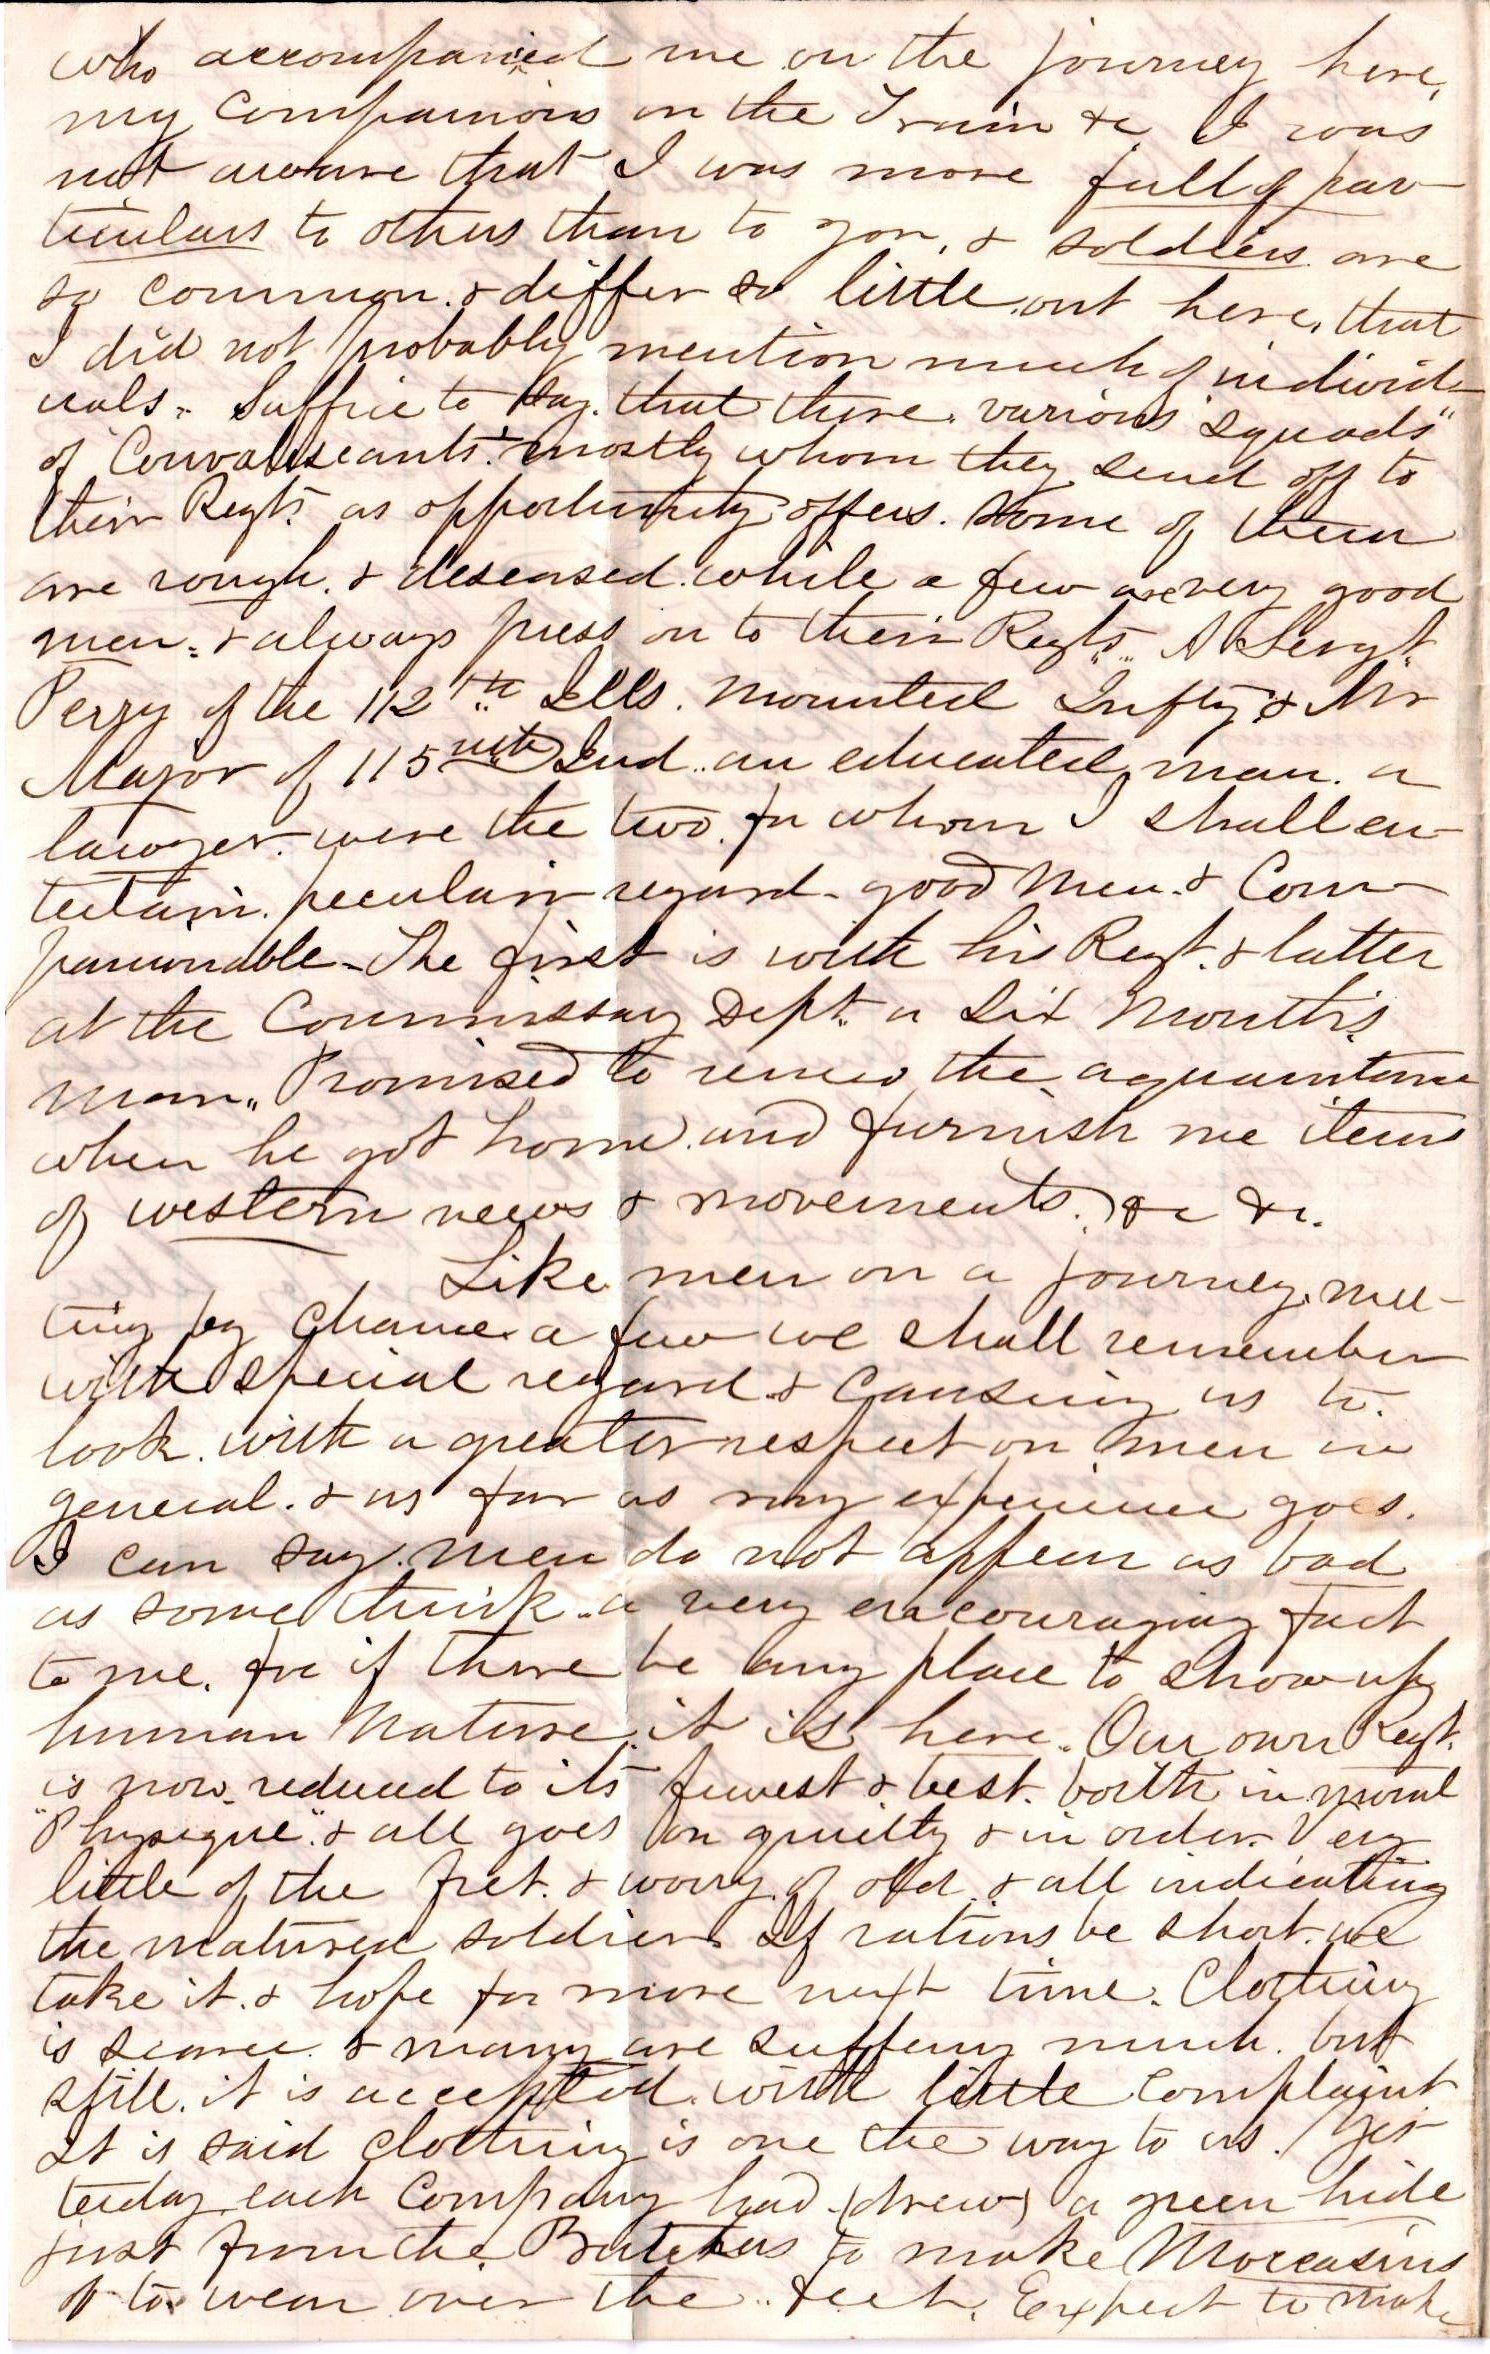 who accompanied me on the journey here,
my companions on the Train &c. I was
not aware that I was more full of par-
ticulars to others than to you, & soldiers are
so common. & differ so little out here, that
I did not probably mention much of individ-
uals. Suffice to say. that there. various "squads"
of Convalescants. mostly whom they send off to
their Regts. as opportunity offers. Some of them
are rough. & deseased. while a few are very good
men. & always press on to their Regts. A Sergt.
Perry of the 112th Ills. Mounted Infty. & Mr
Major of 115 Ind. an educated man. a
lawyer. were the two. for whom I shall en-
tertain. peculair regard - good men. & Com-
panionable - The first is with his Regt. & latter
at the Commissary Dept. a Six Months
man. Promised to renew the aquaintance
when he got home. and furnish me items
of western news & movements. &c &c.
Like men on a journey, mee-
ting by chance a few we shall remember
with special regard & causeing us to.
look. with a greater respect on men in
general. & as far as my experience goes.
I can say. men do not appear as bad
as some think.. a very encouraging fact
to me. for if there be any place to show up
human Nature. it is here. Our own Regt.
is now. reduced to its fewest & best. both in moral
"Physique". & all goes on quietly & in order. Very
little of the fret. & worry of old. & all indicating
the matured soldier. If rations be short. we
take it. & hope for more next time. Clothing
is scarce. & many are suffering much. but
still. it is accepted. with little complaint
It is said clothing is one the way to us. Yes-
terday each Company had (drew) a green hide
just from the Butchers to make Moccasins
of to wear over the .. feet. Expect to make